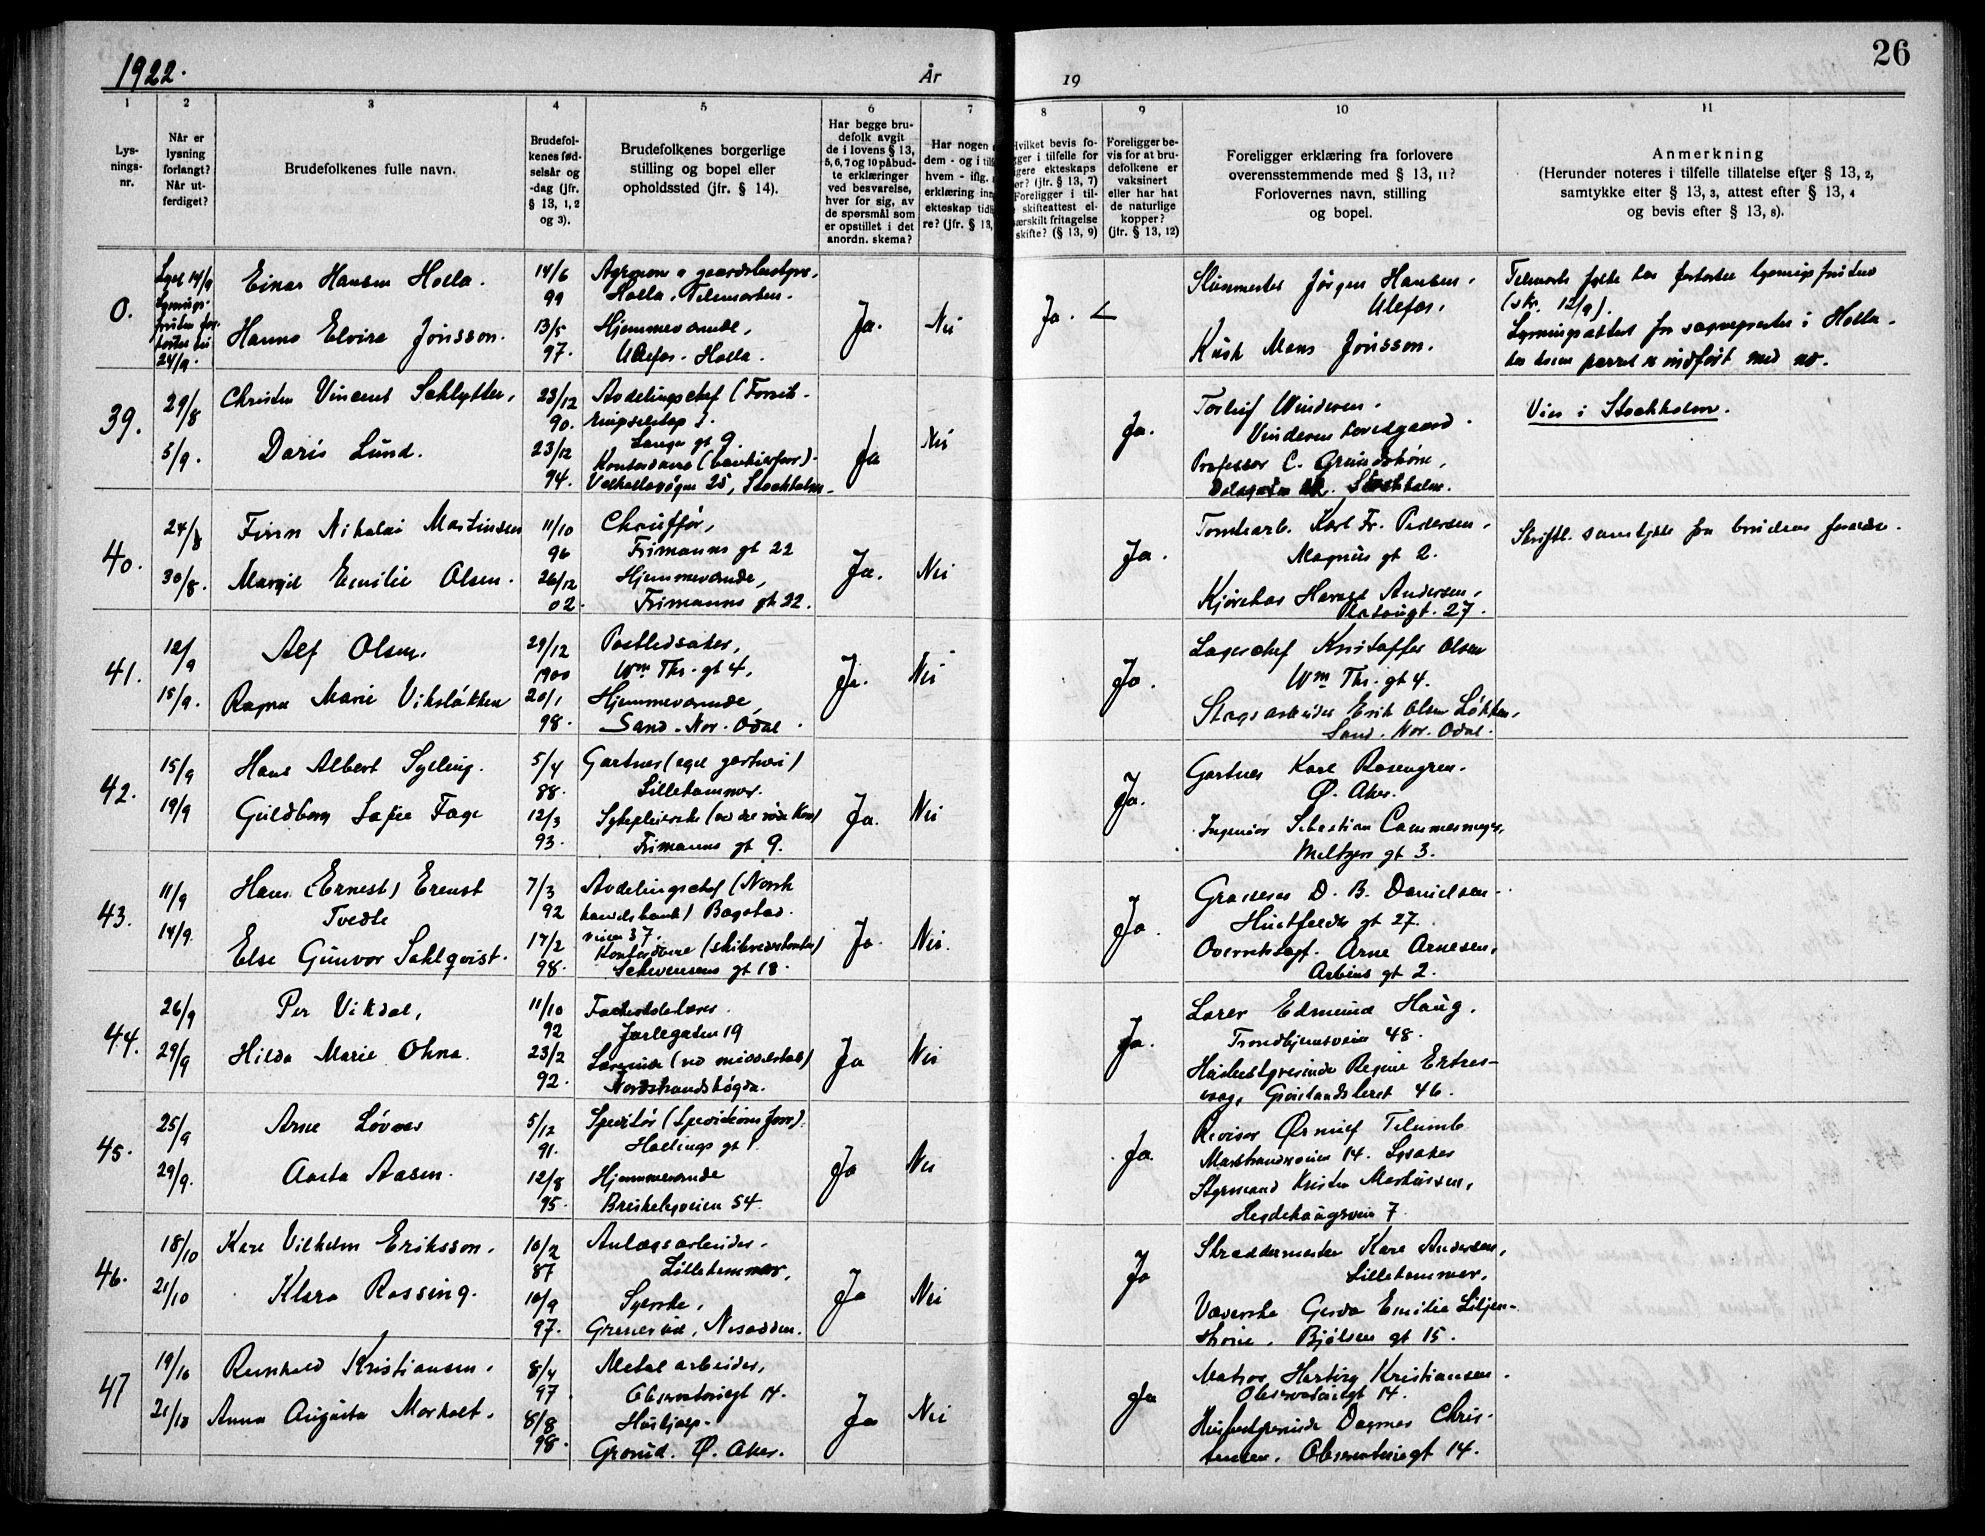 1922.
År
19
26
1
2
3
4
5
6
7
8
9
10
11
Lys-
nings-
nr.
Når er
lysning
forlangt?
Når ut-
ferdiget?
Brudefolkenes fulle navn.
Brudefol-
kenes fød-
selsår og
-dag (jfr.
§ 13, 1, 2
og 3).
Brudefolkenes borgerlige
stilling og bopel eller
opholdssted (jfr. § 14).
Har begge bru-
defolk avgit
de i lovens § 13,
5, 6, 7 og 10 påbud-
te erklæringer
ved besvarelse,
hver for sig, av
de spørsmål som
er opstillet i det
anordn. skema?
Har nogen
dem - og i
hvem - iflg.
erklæring inn
ekteskap tid
re? (jfr. § 13,
Hvilket bevis fo-
gger i tilfelle for
gere ekteskaps
ør? (jfr. § 13, 7)
Foreligger i til-
skifteattest el-
særskilt fritagelse
skifte? (§ 13, 9)
Foreligger be-
vis for at bru-
defolkene er
vaksinert
eller har hat
de naturlige
kopper?
(jfr. § 13, 12)
Foreligger erklæring fra forlovere
overensstemmende med § 13, 11?
Forlovernes navn, stilling
og bopel.
Anmerkning
(Herunder noteres i tilfelle tillatelse efter § 13, 2,
samtykke etter § 13, 3, attest efter § 13, 4
og bevis efter § 13, 8).
0.
14/9
24/9.
Einar Hansen Holla.
Hanna Elvira Jonsson.
14/6
99
13/5
97.
Agronom
Holla, Telemarken.
Hjemmeværende,
Ulefos. Holla.
Ja.
Nei
Ja.
Jørgen Hansen,
Ulefos,
Mons Jonsson.
12/9).
39.
29/8
5/9.
Christen Vincent Schlytter,
Doris Lund.
23/12
90.
23/12
94.
Avdelingschef (Forsik-
ringsselskap).
Langes gt 9.
25, Stockholm
Ja
Nei
Ja.
Torleif Winderen.
Vinderen hovedgaard.
Professor C.
Stockholm.
Vies i Stockholm.
40.
24/8
30/8.
Finn Nikolai Martinsen
Margit Emilie Olsen.
11/10
96
26/12
02.
Chauffør,
Frimanns gt 22
Hjemmeværende,
Frimanns gt 22.
Ja.
Nei
Ja.
Tomtearb. Karl Fr. Pedersen,
Magnus gt 2.
Andersen,
27.
Skriftl. samtykke fra brudens
41.
12/9
15/9.
Alf Olsen.
Ragna Marie Viksløkken
29/12
1900
20/1
98.
Postledsager,
Wm Thr. gt 4.
Hjemmeværende,
Sand. Nor. Odal.
Ja.
Nei
Ja.
Lagerchef Kristoffer Olsen
Wm Thr. gt 4.
Erik Olsen Løkken,
Sand. Nor. Odal.
42.
15/9
19/9
Hans Albert Sylling.
Guldborg Sofie Fage
5/4
88.
12/3
93.
Gartner (eget gartneri)
Lillehammer.
Sykepleierske (ved det røde Kors)
Frimanns gt 9.
Ja.
Nei
Ja.
Gartner Karl Rosengren.
Ø. Aker.
Ingeniør Sebastian Cammermeyer,
Meltzers gt 3.
43.
11/9
14/9.
Hans (Ernest) Erenst
Tvedte
Else Gunvor Sahlqvist.
7/3
92
17/2
98.
Avdelingschef (Norsk
handelsbank) Bogstad-
veien 37.
Kontordame
gt 18.
Ja.
Nei.
Ja.
Grosserer D. B. Danielsen
Huitfeldts gt 27.
Overretssagf. Arne Arnesen,
Arbins gt 2.
44.
26/9
29/9
Per Vikdal,
Hilda Marie Ohna.
11/10
92
23/2
92.
Jarlegaten 19
Lærerinde (ved middelskole)
Nordstrandshøgda.
Ja
Nei
Ja.
Lærer Edmund Haug.
Trondhjemsveien 48.
Husbestyrerinde Regine Ertres-
vaag, Grønlandsleret 46.
45.
25/9
29/9.
Arne Løvaas
Aasta Aasen.
5/12
91.
12/8
95.
Speditør (Speditionsforr.)
Hallings gt 1.
Hjemmeværende
Briskebyveien 54.
Ja
Nei
Ja.
Revisor
14. Lysaker
Styrmand Kristen Martinsen,
Hegdehaugsveien 7
46.
18/10
21/10
Karl Vilhelm Eriksson.
Klara Rossing.
10/2
87
10/9
97.
Anlægsarbeider.
Lillehammer,
Syerske,
Nesodden.
Ja
Nei
Ja
Skreddermester Kare Andersen,
Lillehammer,
Væverske Gerda Emilie Liljen-
Bjølsen gt 15.
47
19/10
21/10
Reinhold Kristiansen.
Anna Augusta Morholt.
8/4
97
8/8
98.
Metalarbeider,
Observatoriegt 14.
Hushjælp.
Grorud. Ø. Aker.
Ja
Nei
Ja
Kristiansen.
Observatoriegt 14.
Husbestyrerinde Dagmar Chris-
tensen. Observatoriegt 14.